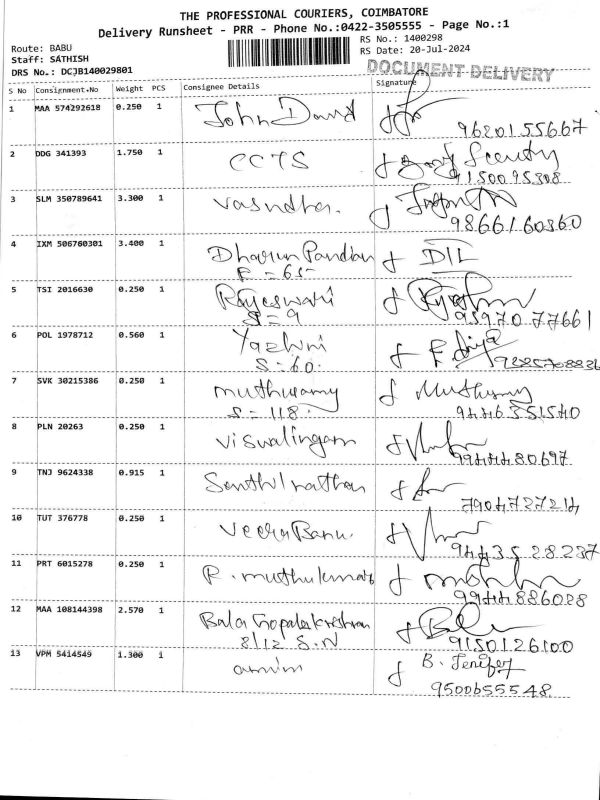 THE PROFESSIONAL COURIERS, COIMBATORE
Delivery Runsheet - PRR - Phone No.:0422-3505555 - Page No.:1
Route: BABU
RS No.: 1400298
Staff: SATHISH
RS Date: 20-Jul-2024
DRS No.: DCJB140029801
DOCUMENT DELIVERY
S No Consignment.No Weight PCS Consignee Details Signature
1 MAA 574292618 0.250 1 John David
9620155667
2 DDG 341393 1.750 1 CCTS
9150095308
3 SLM 350789641 3.300 1 Vasndha.
9866160360
4 IXM 506760301 3.400 1 Dharun Pandian DIL
F - 65
5 TSI 2016630 0.250 1 Rajeswari
S = 9 9597077661
6 POL 1978712 0.560 1 Yazhini
S - 60.
7 SVK 30215386 0.250 1 muthusamy Muthusamy
S = 118. 9446351540
8 PLN 20263 0.250 1 Viswalingam
9944480697
9 TNJ 9624338 0.915 1 Senthil nathan
7904727214
10 TUT 376778 0.250 1 Veera Banu.
9443528237
11 PRT 6015278 0.250 1 R. muthukumar
9944886028
12 MAA 108144398 2.570 1 Bala Gopalakrishnan
8/12 S.N 9150126100
13 VPM 5414549 1.300 1 B. Jenifer
9500655548.